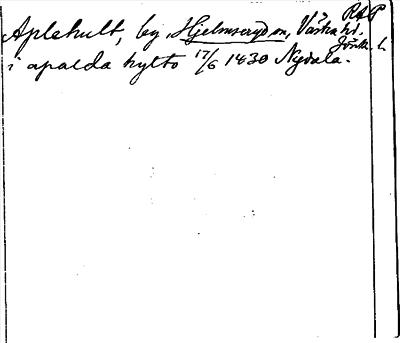 RAP
Aplehult, by, Hjelmseryd sn, Västra hd.
Jönk. l.
i apalda hylto 17/6 1430 Nydala.